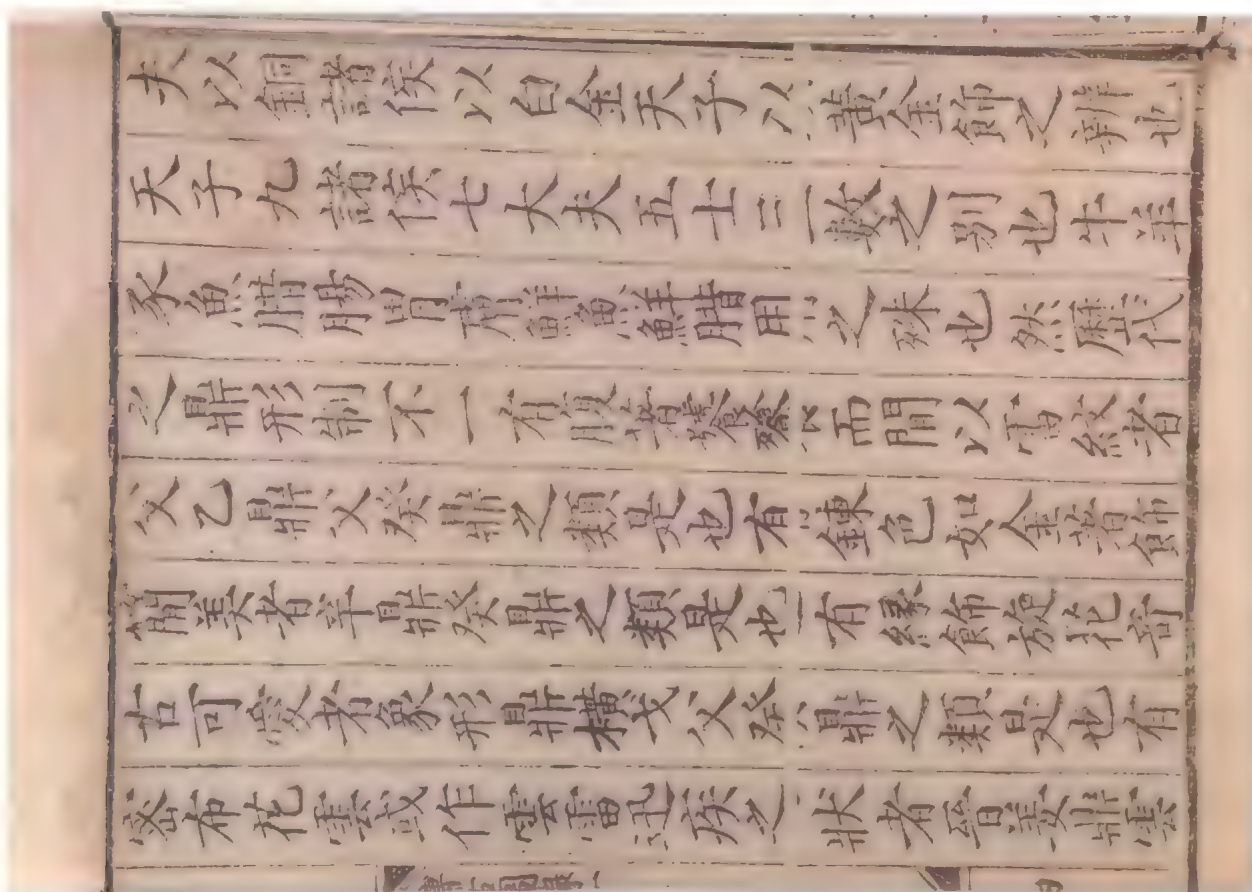 夫以銅諸侯以白金天子以黃金飾之辨也
天子九諸侯七大夫五士三數之別也牛羊
豕魚腊腸胃膚鮮魚鮮腊用之殊也然歷代
之鼎形制不一有腹著饕餮而間以雷紋者
父乙鼎父癸鼎之類是也有鍊色如金著飾
簡美者辛鼎癸鼎之類是也有緣飾旋花奇
古可愛者象形鼎橫戈父癸鼎之類是也有
密布花雲或作雲雷迅疾之狀者晉姜鼎雲
博古圖錄一